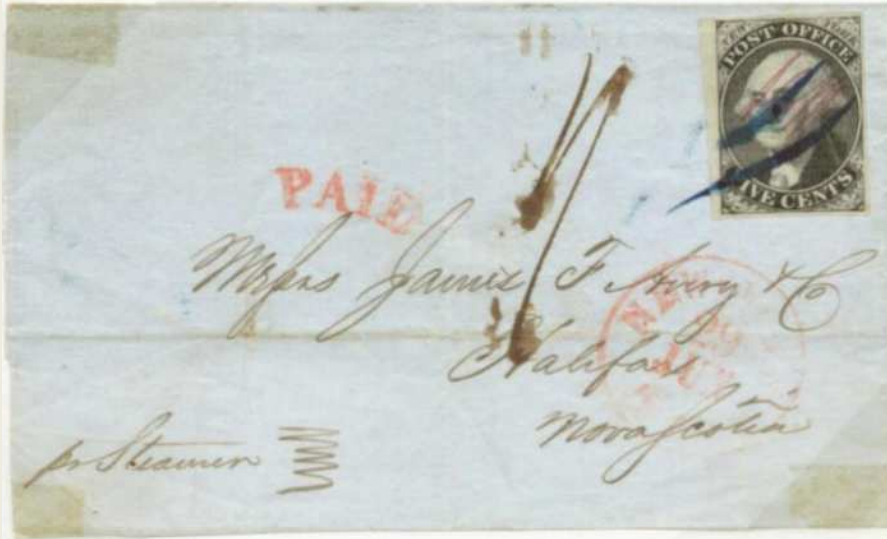 POST OFFICE
FIVE CENTS
PAID
Messrs James F Avery & Co
Halifax
Nova Scotia
pr Steamer
NEW